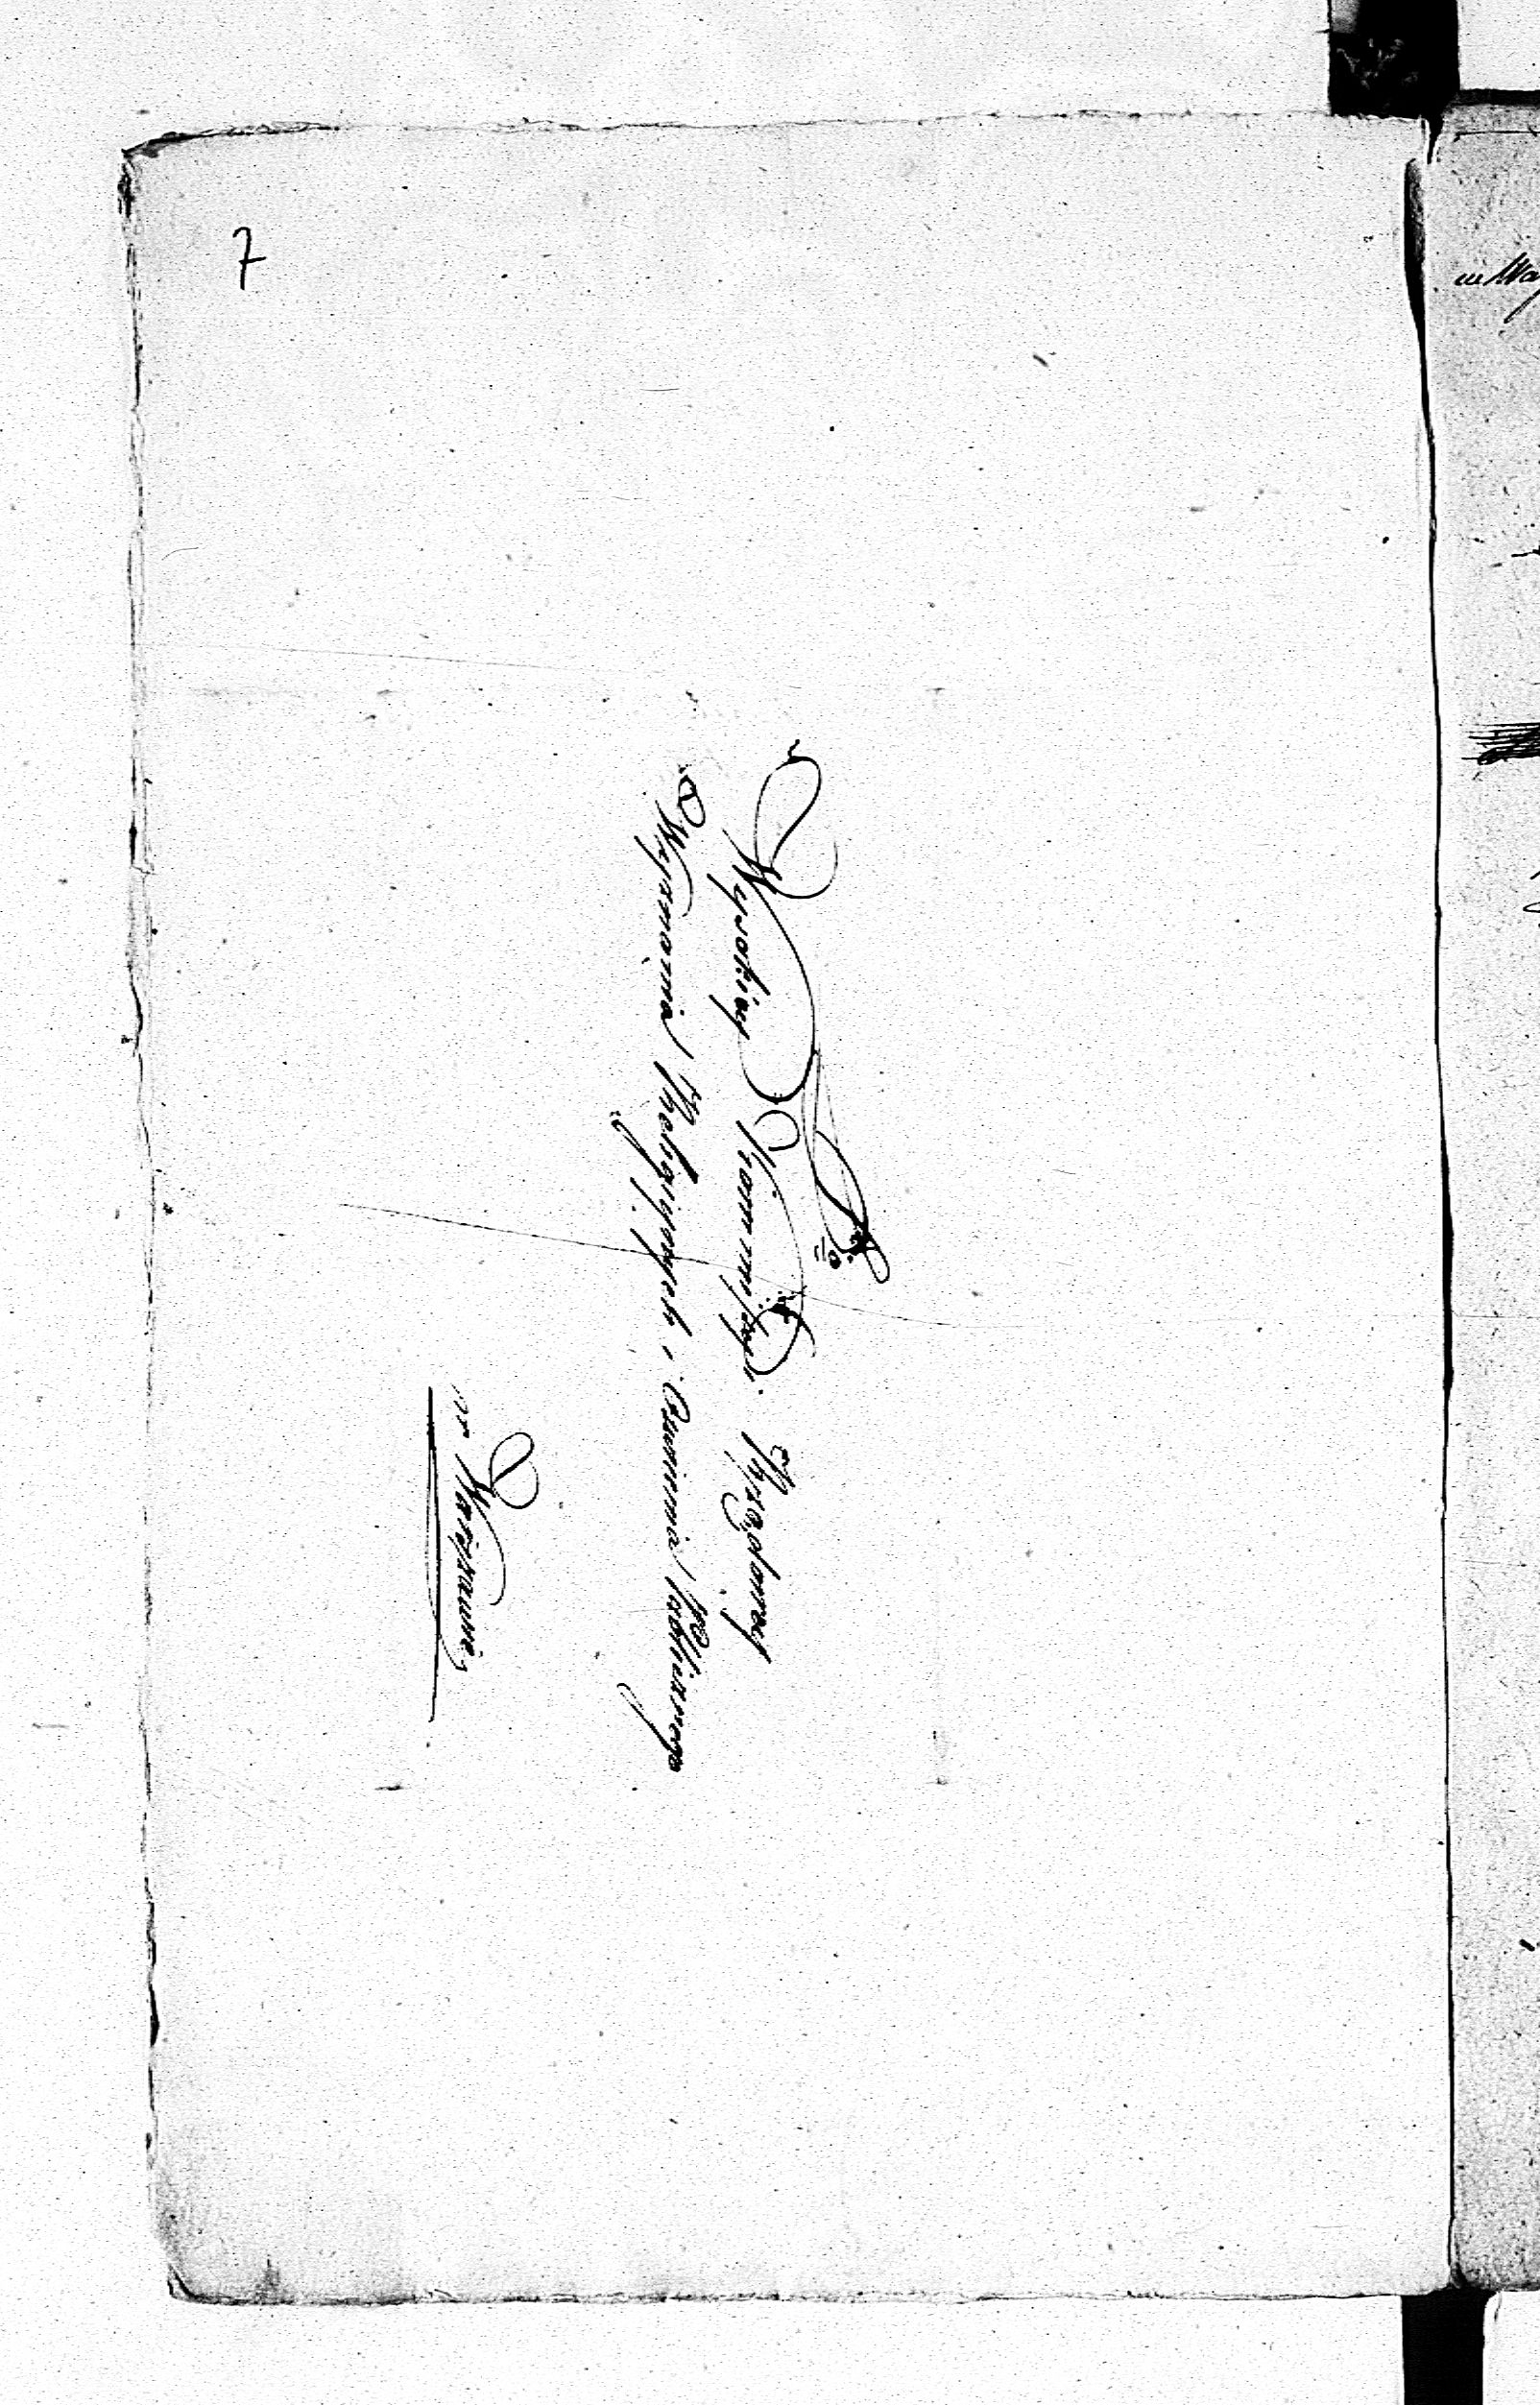 7
Do
Wysokiey Kommissyi Rządowey
Wyznania Religiynych i Oświecenia Publicznego
w Warszawie,